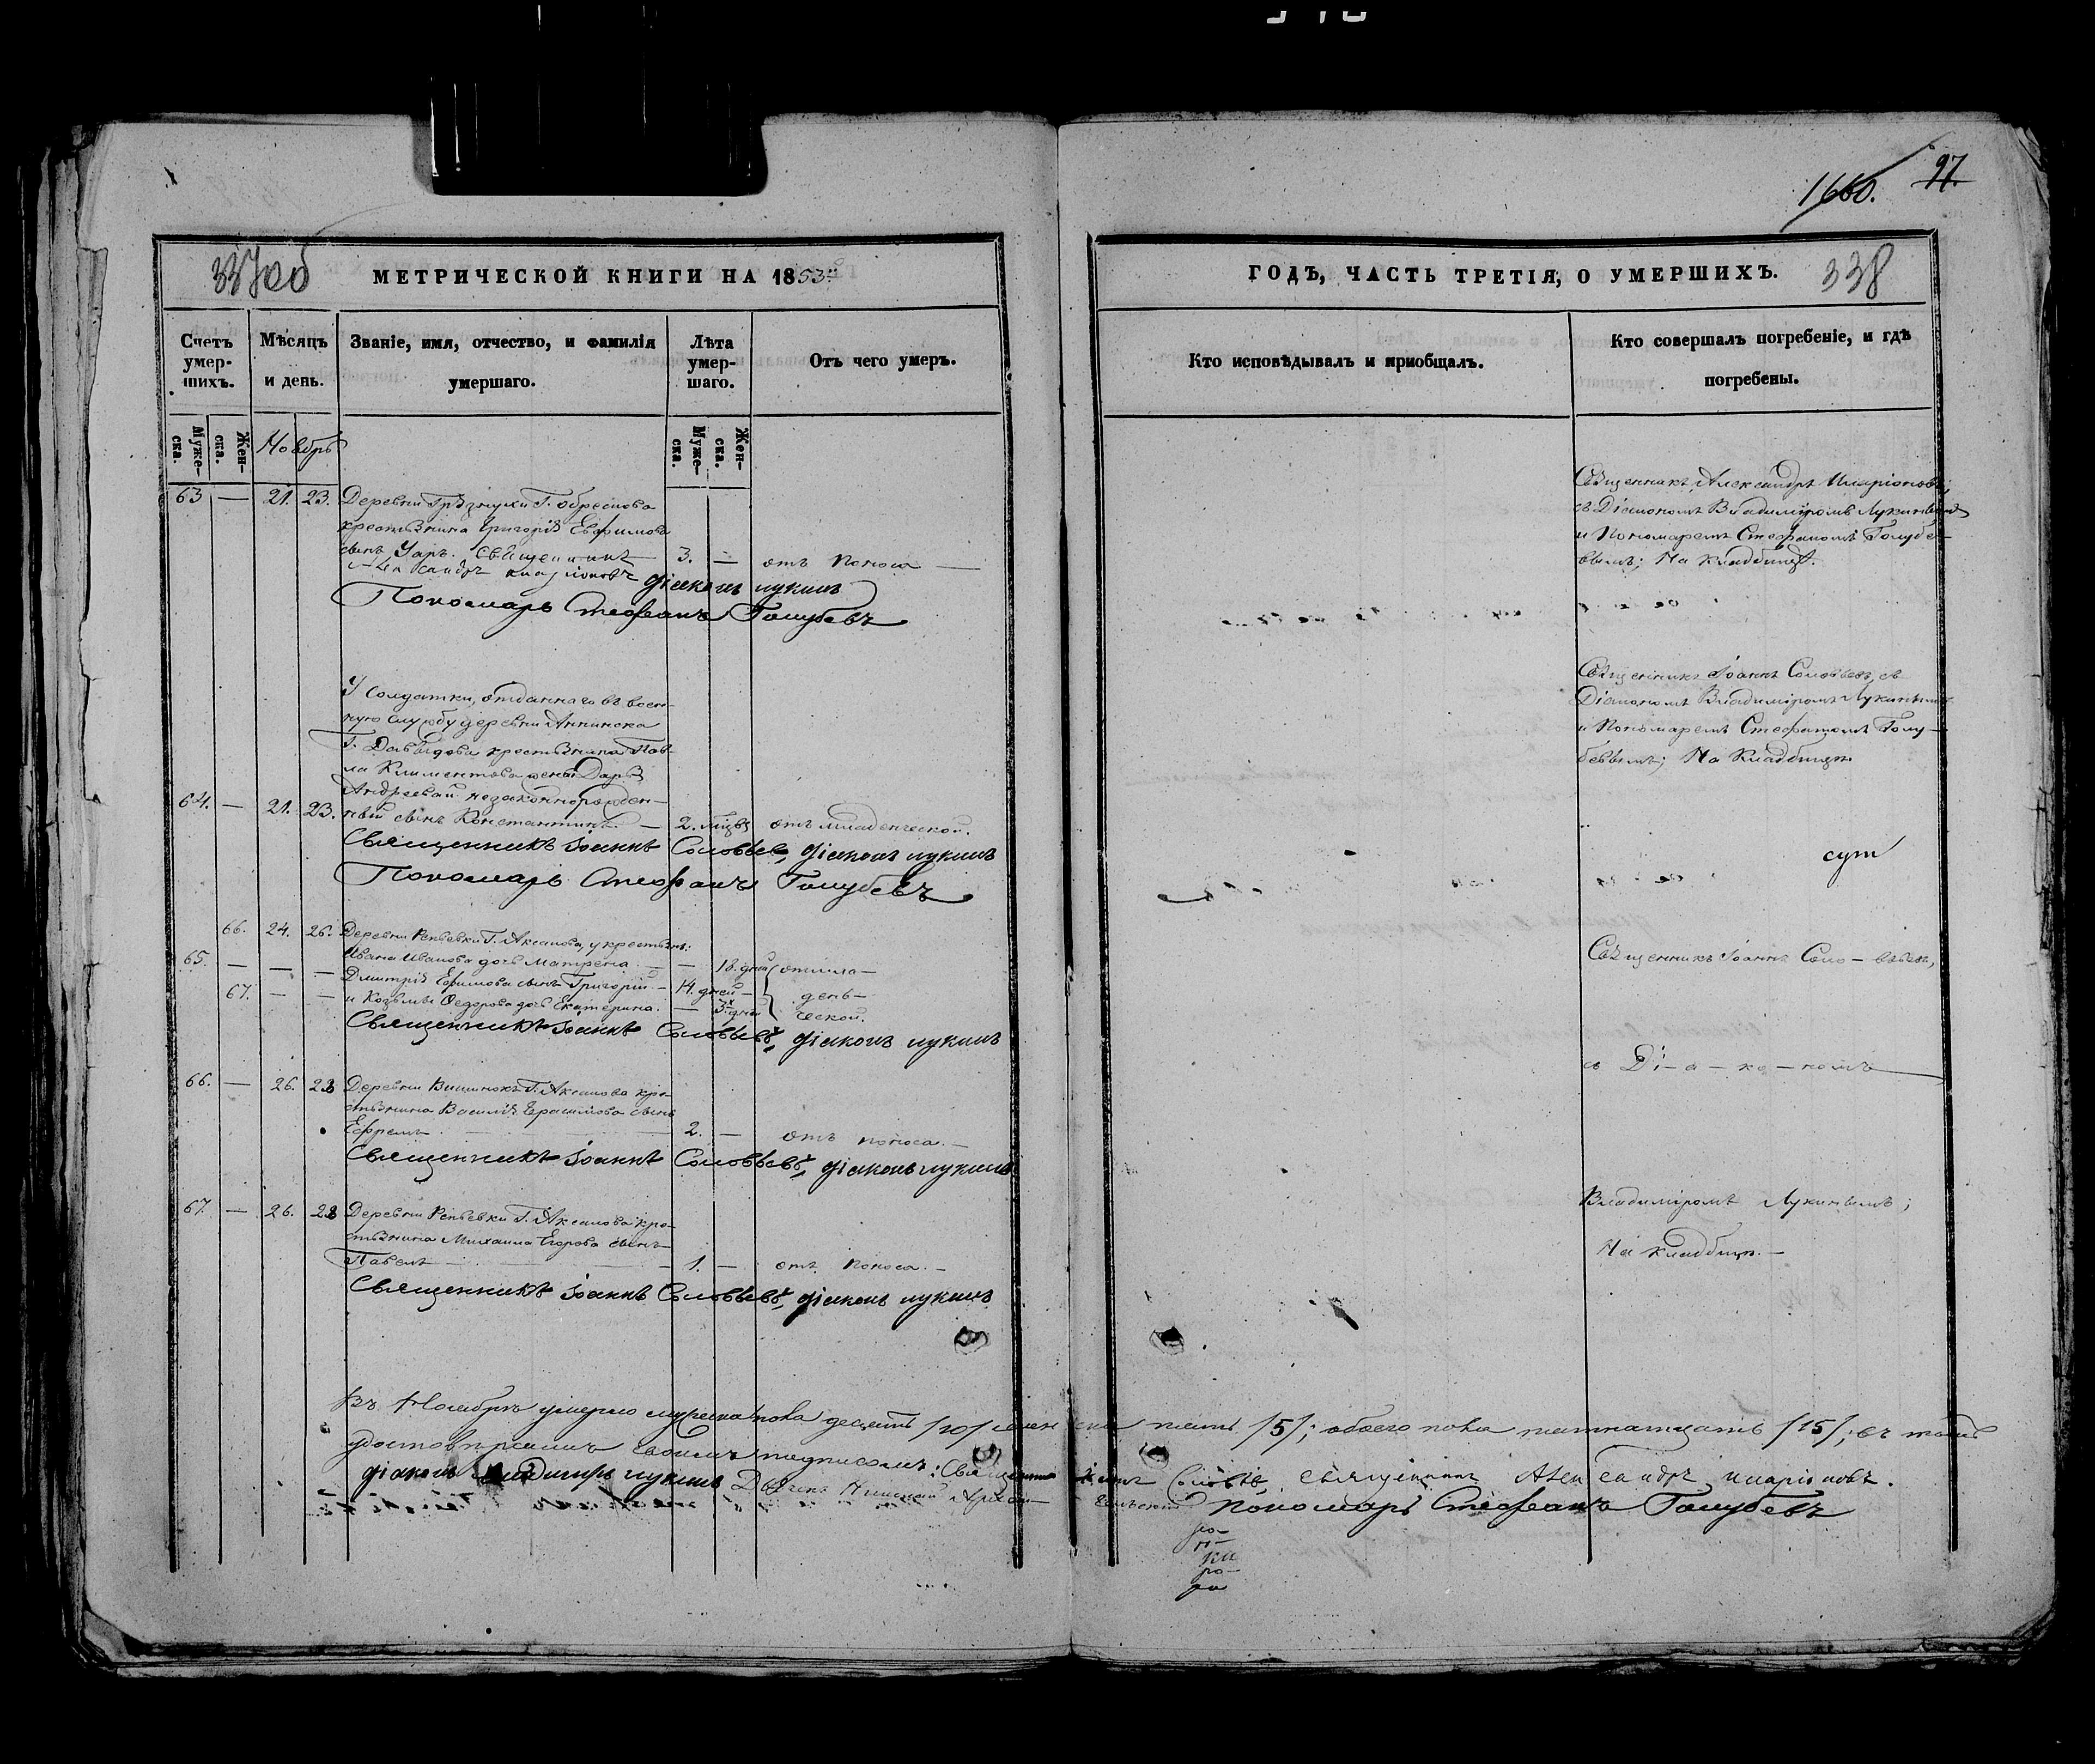 1660. 97.
337об
МЕТРИЧЕСКОЙ КНИГИ НА 1853й
Счетъ умер-шихъ.
Мѣсяцъ и день.
Званіе, имя, отчество, и фамилія умершаго.
Лѣта умер-шаго.
Отъ чего умеръ.
Муже-ска.
Жен-ска.
Ноябрь
Муже-ска.
Жен-ска.
63 — 21. 23. Деревни Грѣзнухи Г. Обрескова
крестьянина Григорія Евфимова
сынъ Уаръ. Священникъ 3. — отъ поноса —
Александръ Иларіоновъ діаконъ Лукинъ
Пономарь Стефанъ Голубевъ
У солдатки, отданнаго въ воен-
ную службу деревни Аннинска
Г. Давыдова крестьянина Пав-
ла Климентова жены Дарьи
Андреевой незаконнорожден-
64. — 21. 23. ный сынъ Константинъ. — 2. мѣсяц. отъ младенческой.
Священникъ Іоаннъ Соловьевъ, діаконъ Лукинъ
Пономарь Стефанъ Голубевъ
66. 24. 26. Деревни Репьевки Г. Аксакова, у крестьянъ:
65. — — — Ивана Иванова дочь Матрена. — — 18. дней отъ мла-
Дмитрія Ефимова сынъ Григорій — 14. дней — день-
67. — — и Козьмы Федорова дочь Екатерина. — 3х дней ческой.
Священникъ Іоаннъ Соловьевъ, діаконъ Лукинъ
66. — 26. 28 Деревни Вишенокъ Г. Аксакова кре-
стьянина Василія Герасимова сынъ
Ефремъ 2. — отъ поноса. —
Священникъ Іоаннъ Соловьевъ, діаконъ Лукинъ
67. — 26. 28 Деревни Репьевки Г. Аксакова кре-
стьянина Михаила Егорова сынъ
Павелъ — 1. — отъ поноса. —
Священникъ Іоаннъ Соловьевъ, діаконъ Лукинъ
ГОДЪ, ЧАСТЬ ТРЕТІЯ, О УМЕРШИХЪ.
338
Кто исповѣдывалъ и пріобщалъ.
Кто совершалъ погребеніе, и гдѣ погребены.
Священникъ Александръ Иларіоновъ,
съ Діакономъ Владиміромъ Лукинымъ
и Пономаремъ Стефаномъ Голубе-
вымъ; На кладбищѣ.
Священникъ Іоаннъ Соловьевъ, съ
Діакономъ Владиміромъ Лукинымъ
и Пономаремъ Стефаномъ Голу-
бевымъ; На кладбищѣ
сут
Священникъ Іоаннъ Соло-вьевъ,
съ Ді-а-ко-номъ
Владиміромъ Лукинымъ;
На кладбищѣ. —
Въ Ноябрѣ умерло мужеска пола десять /10/ женска пять /5/; обоего пола пятнатцать /15/; въ томъ
удостовѣряемъ своимъ подписомъ: Священникъ Іоаннъ Соловьевъ, священникъ Александръ Иларіоновъ.
діаконъ Владимиръ Лукинъ Дьячекъ Николай Архангельскій Пономарь Стефанъ Голубевъ